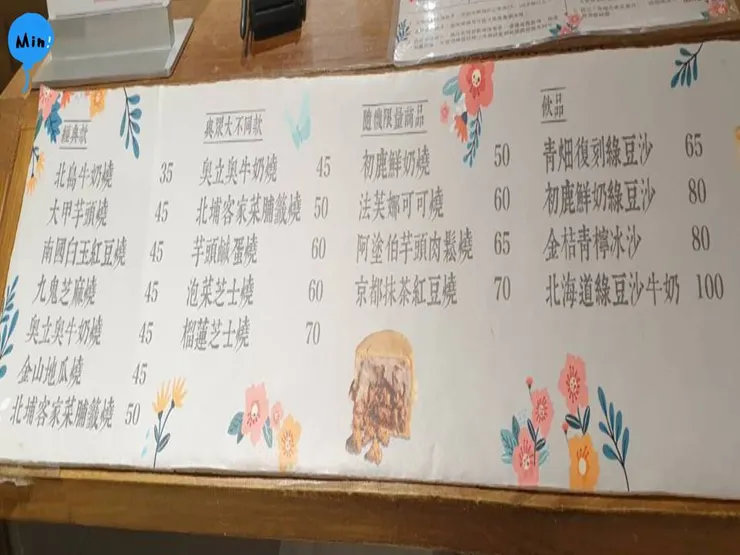 Min!
經典款
北島牛奶燒 35
大甲芋頭燒 45
南國白玉紅豆燒 45
九鬼芝麻燒 45
奧立奧牛奶燒 45
金山地瓜燒 45
北埔客家菜脯籤燒 50
與眾大不同款
奧立奧牛奶燒 45
北埔客家菜脯籤燒 50
芋頭鹹蛋燒 60
泡菜芝士燒 60
榴蓮芝士燒 70
隨機限量商品
初鹿鮮奶燒 50
法芙娜可可燒 60
阿塗伯芋頭肉鬆燒 65
京都抹茶紅豆燒 70
飲品
青畑復刻綠豆沙 65
初鹿鮮奶綠豆沙 80
金桔青檸冰沙 80
北海道綠豆沙牛奶 100